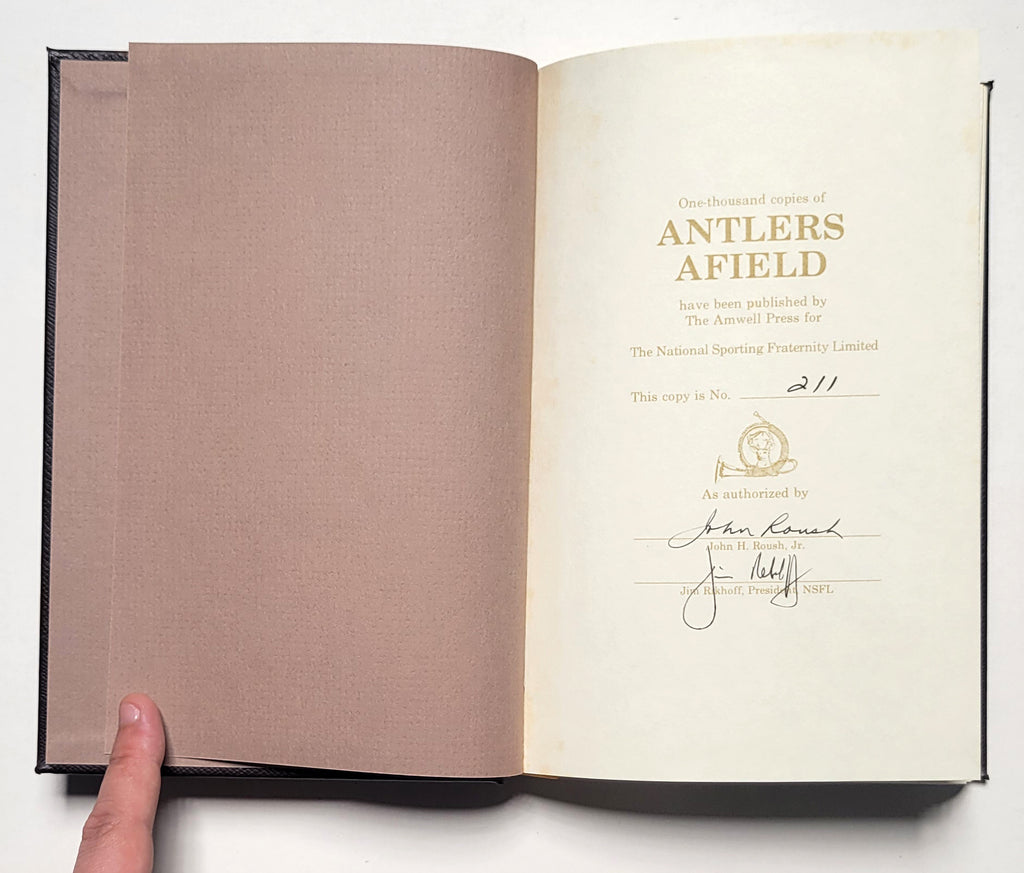 One-thousand copies of
ANTLERS
AFIELD
have been published by
The Amwell Press for
The National Sporting Fraternity Limited
This copy is No. 211
As authorized by
John Roush
John H. Roush, Jr.
Jim Rikhoff
Jim Rikhoff, President, NSFL